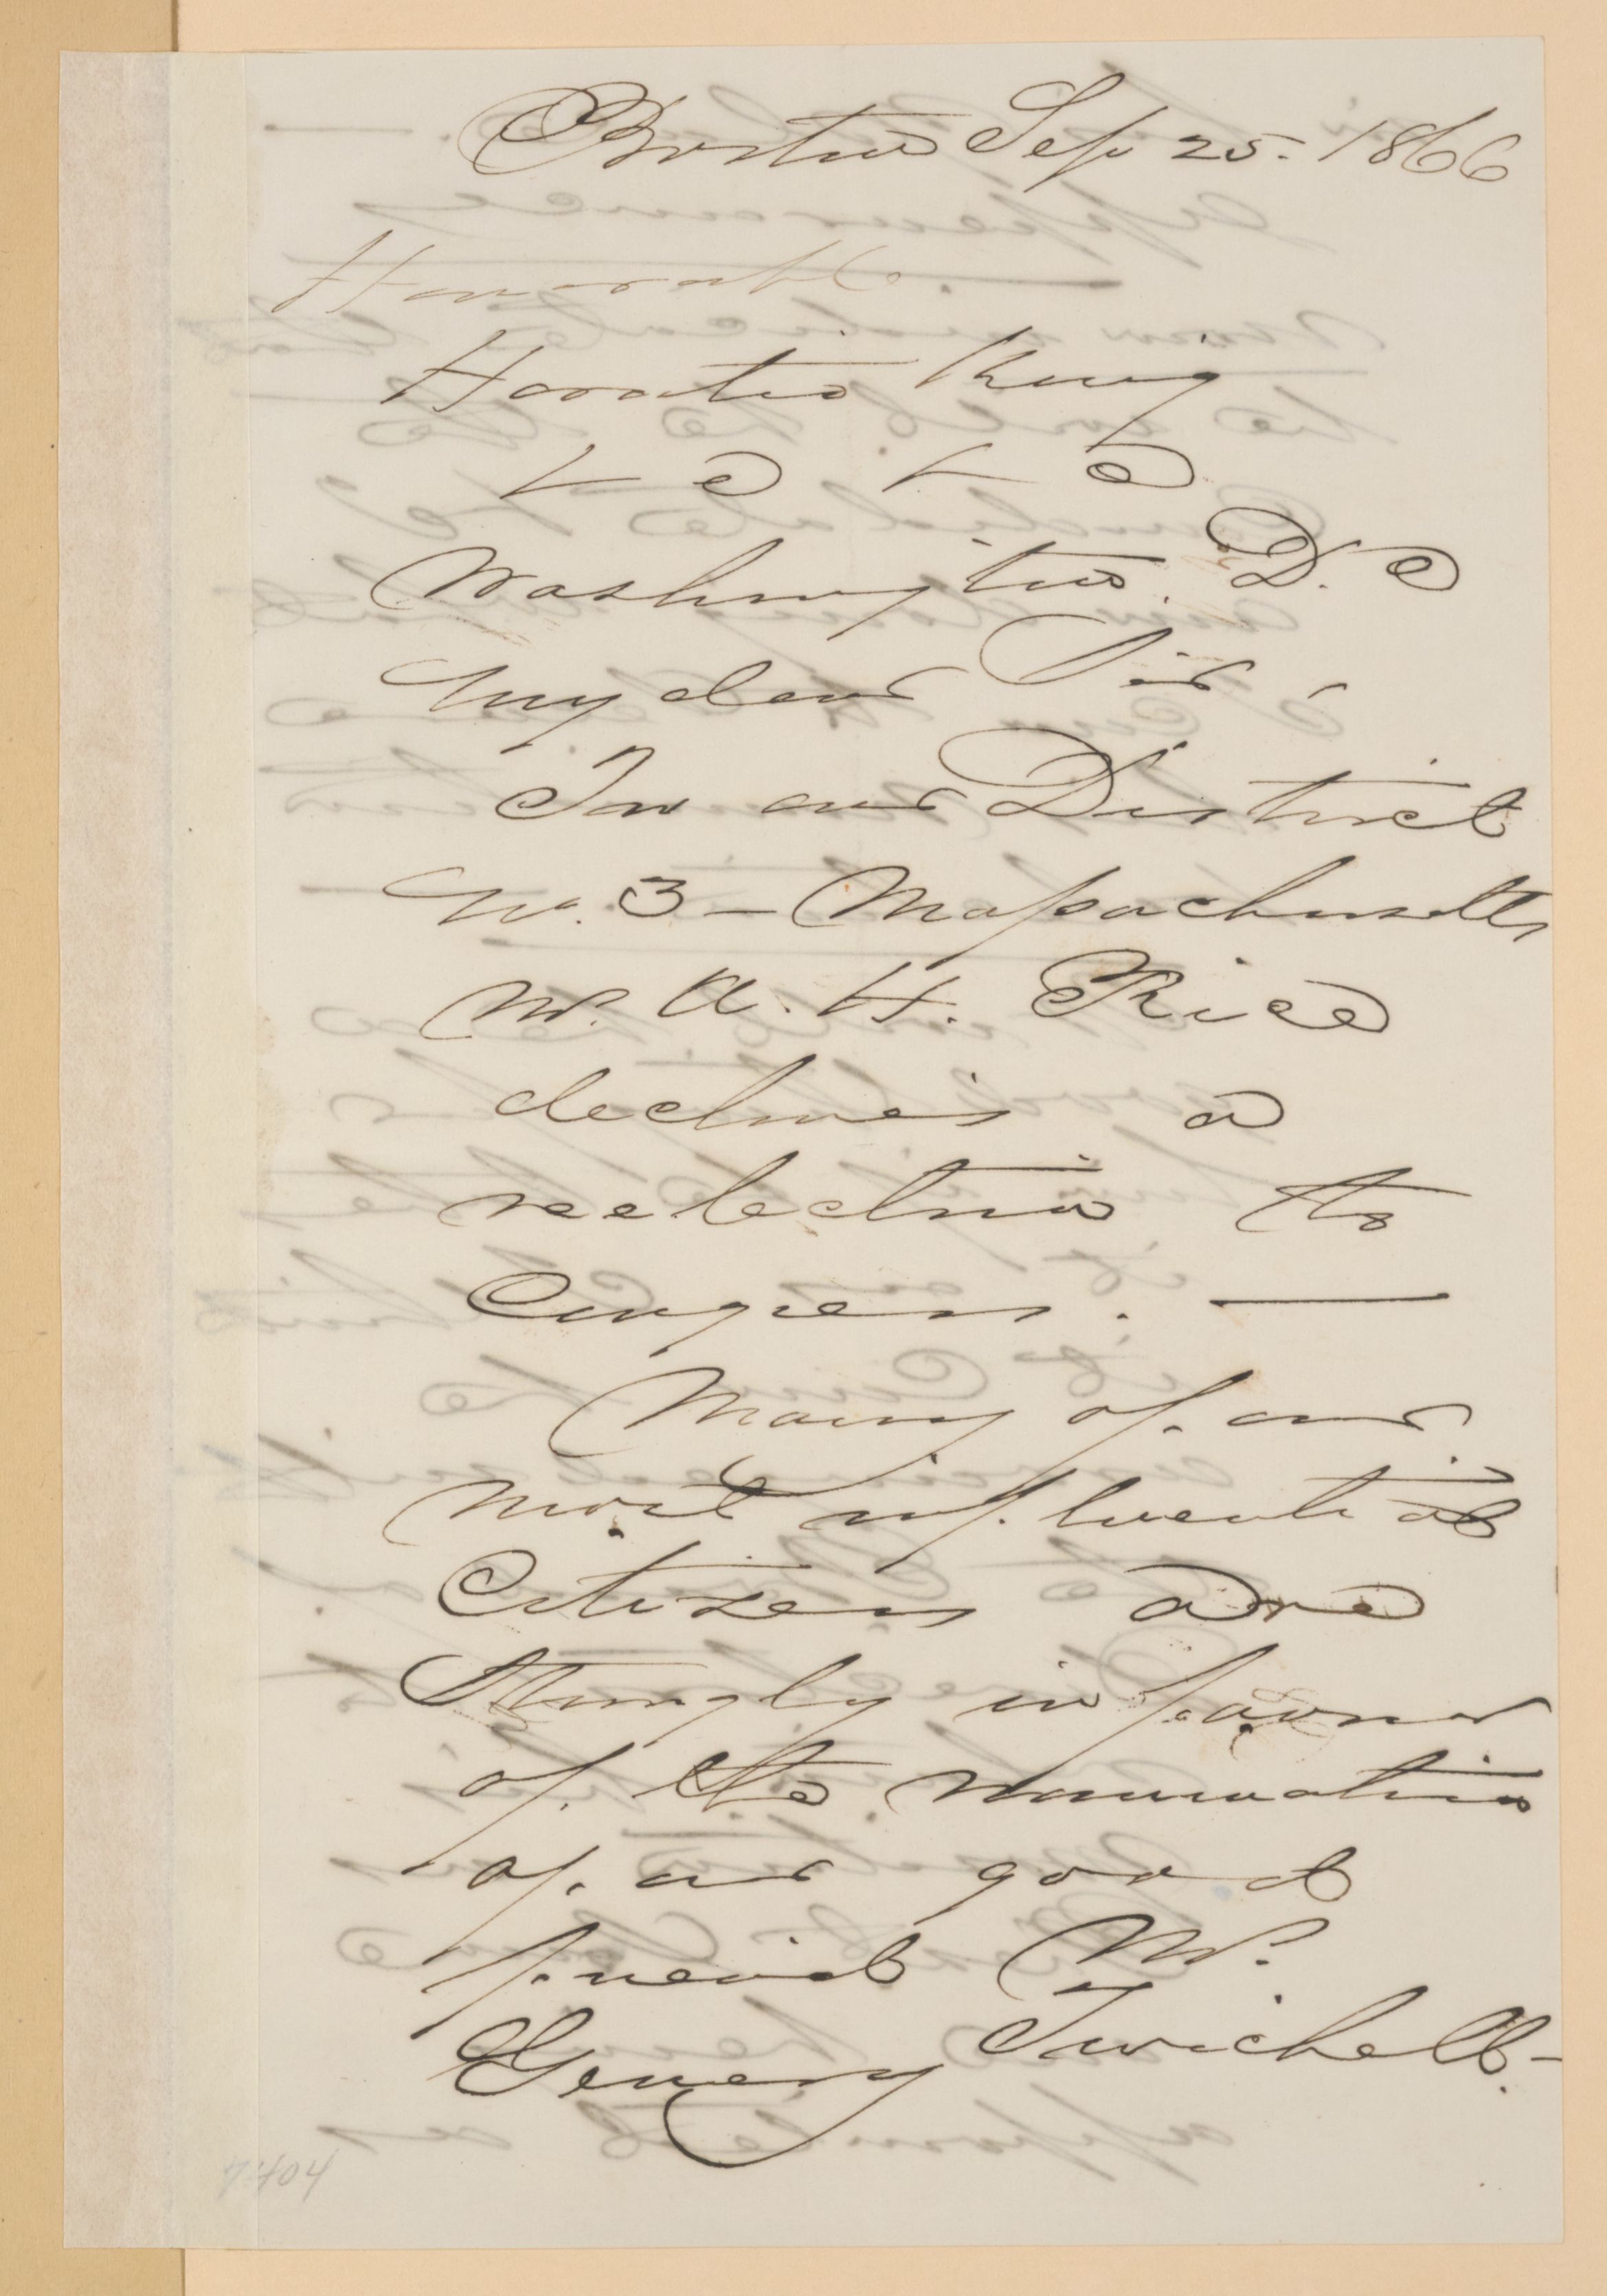 Boston Sep 25. 1866
Honorable.
Horatio King
&c &c
Washington. D. C
My dear Sir -
In our District
No. 3 - Massachusetts
Mr. A. H. Rice
declines a
reelection to
Congress. —
Many of our
most influential
Citizens are
Strongly in favor
of the nomination
of our good
friend Mr.
Ginery Twichell -
7404